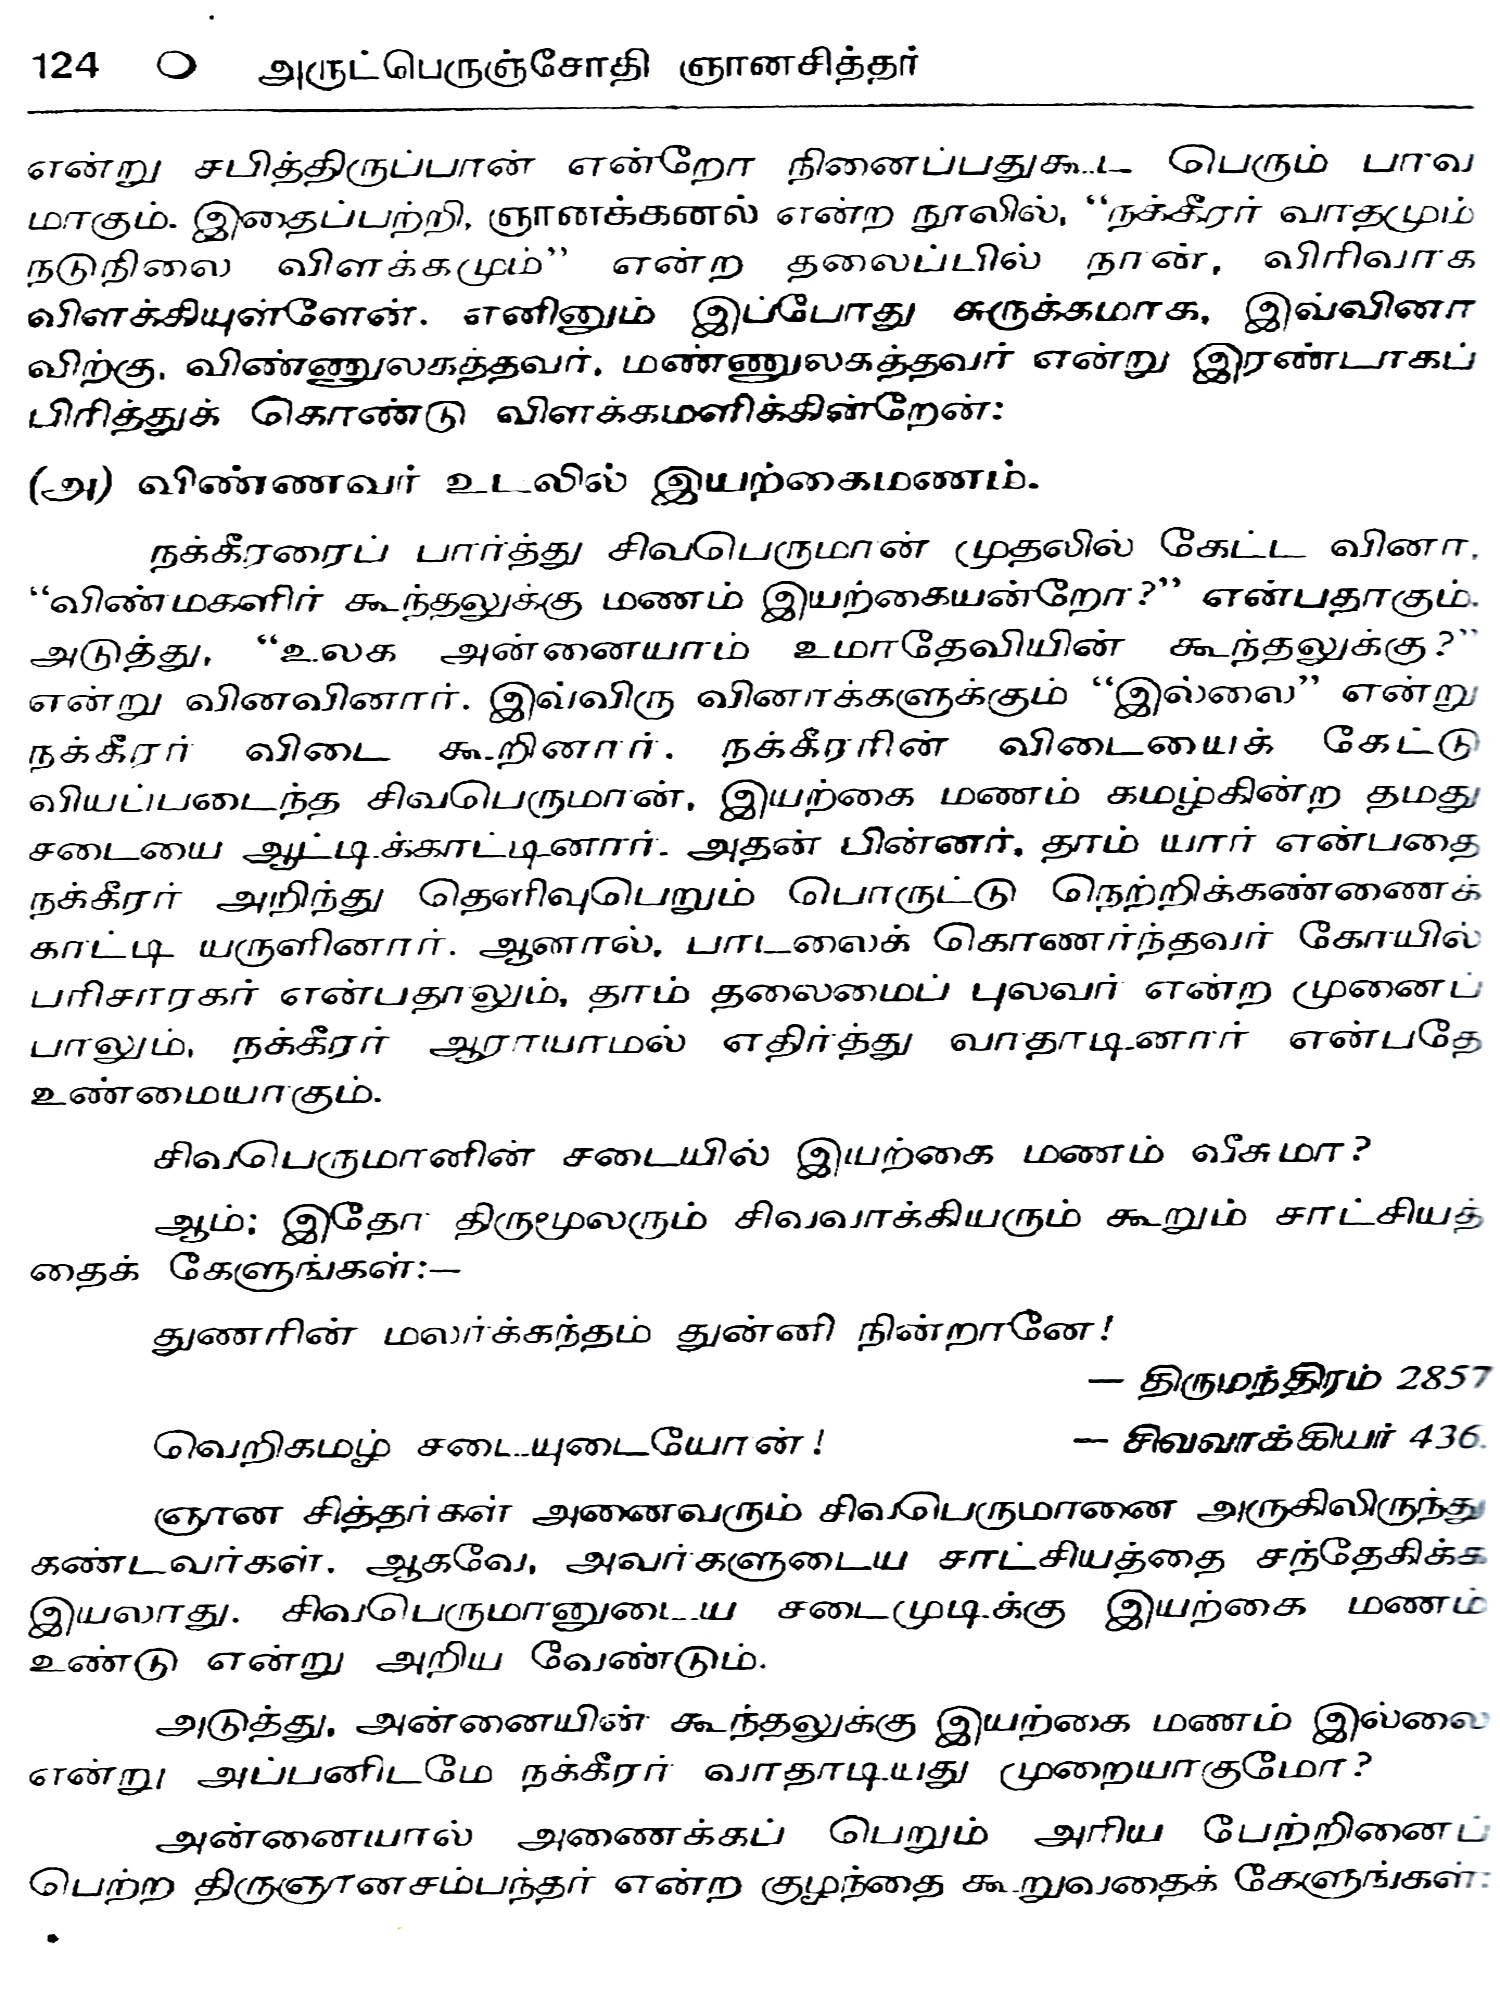 124 O அருட்பெருஞ்சோதி ஞானசித்தர்
என்று சபித்திருப்பான் என்றோ நினைப்பதுகூட பெரும் பாவ
மாகும். இதைப்பற்றி, ஞானக்கனல் என்ற நூலில், “நக்கீரர் வாதமும்
நடுநிலை விளக்கமும்” என்ற தலைப்பில் நான், விரிவாக
விளக்கியுள்ளேன். எனினும் இப்போது சுருக்கமாக, இவ்வினா
விற்கு, விண்ணுலகத்தவர், மண்ணுலகத்தவர் என்று இரண்டாகப்
பிரித்துக் கொண்டு விளக்கமளிக்கின்றேன்:
(அ) விண்ணவர் உடலில் இயற்கைமணம்.
நக்கீரரைப் பார்த்து சிவபெருமான் முதலில் கேட்ட வினா,
“விண்மகளிர் கூந்தலுக்கு மணம் இயற்கையன்றோ?” என்பதாகும்.
அடுத்து, “உலக அன்னையாம் உமாதேவியின் கூந்தலுக்கு?”
என்று வினவினார். இவ்விரு வினாக்களுக்கும் “இல்லை” என்று
நக்கீரர் விடை கூறினார். நக்கீரரின் விடையைக் கேட்டு
வியப்படைந்த சிவபெருமான், இயற்கை மணம் கமழ்கின்ற தமது
சடையை ஆட்டிக்காட்டினார். அதன் பின்னர், தாம் யார் என்பதை
நக்கீரர் அறிந்து தெளிவுபெறும் பொருட்டு நெற்றிக்கண்ணைக்
காட்டி யருளினார். ஆனால், பாடலைக் கொணர்ந்தவர் கோயில்
பரிசாரகர் என்பதாலும், தாம் தலைமைப் புலவர் என்ற முனைப்
பாலும், நக்கீரர் ஆராயாமல் எதிர்த்து வாதாடினார் என்பதே
உண்மையாகும்.
சிவபெருமானின் சடையில் இயற்கை மணம் வீசுமா?
ஆம்; இதோ திருமூலரும் சிவவாக்கியரும் கூறும் சாட்சியத்
தைக் கேளுங்கள்:—
துணரின் மலர்க்கந்தம் துன்னி நின்றானே!
— திருமந்திரம் 2857
வெறிகமழ் சடையுடையோன்! — சிவவாக்கியர் 436.
ஞான சித்தர்கள் அனைவரும் சிவபெருமானை அருகிலிருந்து
கண்டவர்கள். ஆகவே, அவர்களுடைய சாட்சியத்தை சந்தேகிக்க
இயலாது. சிவபெருமானுடைய சடைமுடிக்கு இயற்கை மணம்
உண்டு என்று அறிய வேண்டும்.
அடுத்து, அன்னையின் கூந்தலுக்கு இயற்கை மணம் இல்லை
என்று அப்பனிடமே நக்கீரர் வாதாடியது முறையாகுமோ?
அன்னையால் அணைக்கப் பெறும் அரிய பேற்றினைப்
பெற்ற திருஞானசம்பந்தர் என்ற குழந்தை கூறுவதைக் கேளுங்கள்: